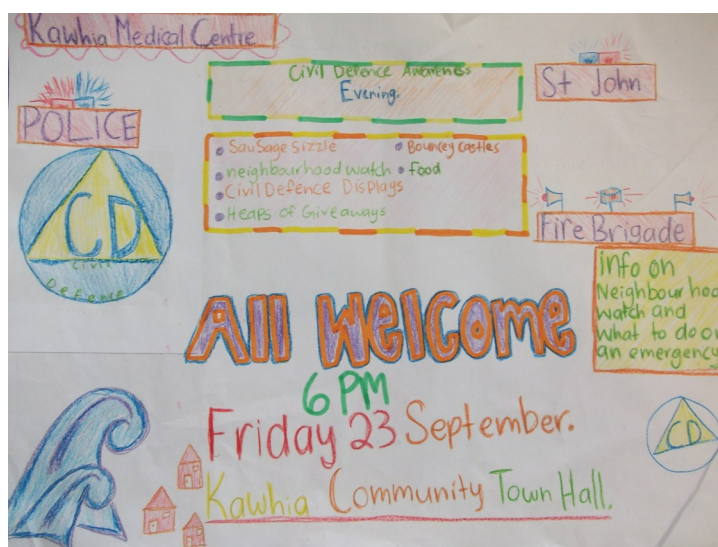 Kawhia Medical Centre
Civil Defence Awareness
Evening.
St John
POLICE
SauSage Sizzle
Bouncey Castles
neighbourhood watch
Food
Civil Defence Displays
Heaps of Giveaways
CD
Civil
Defence
Fire Brigade
info on
Neighbour hoo
watch and
what to do
an emergency
All Welcome
6 PM
Friday 23 September.
CD
Kawhia Community Town Hall.